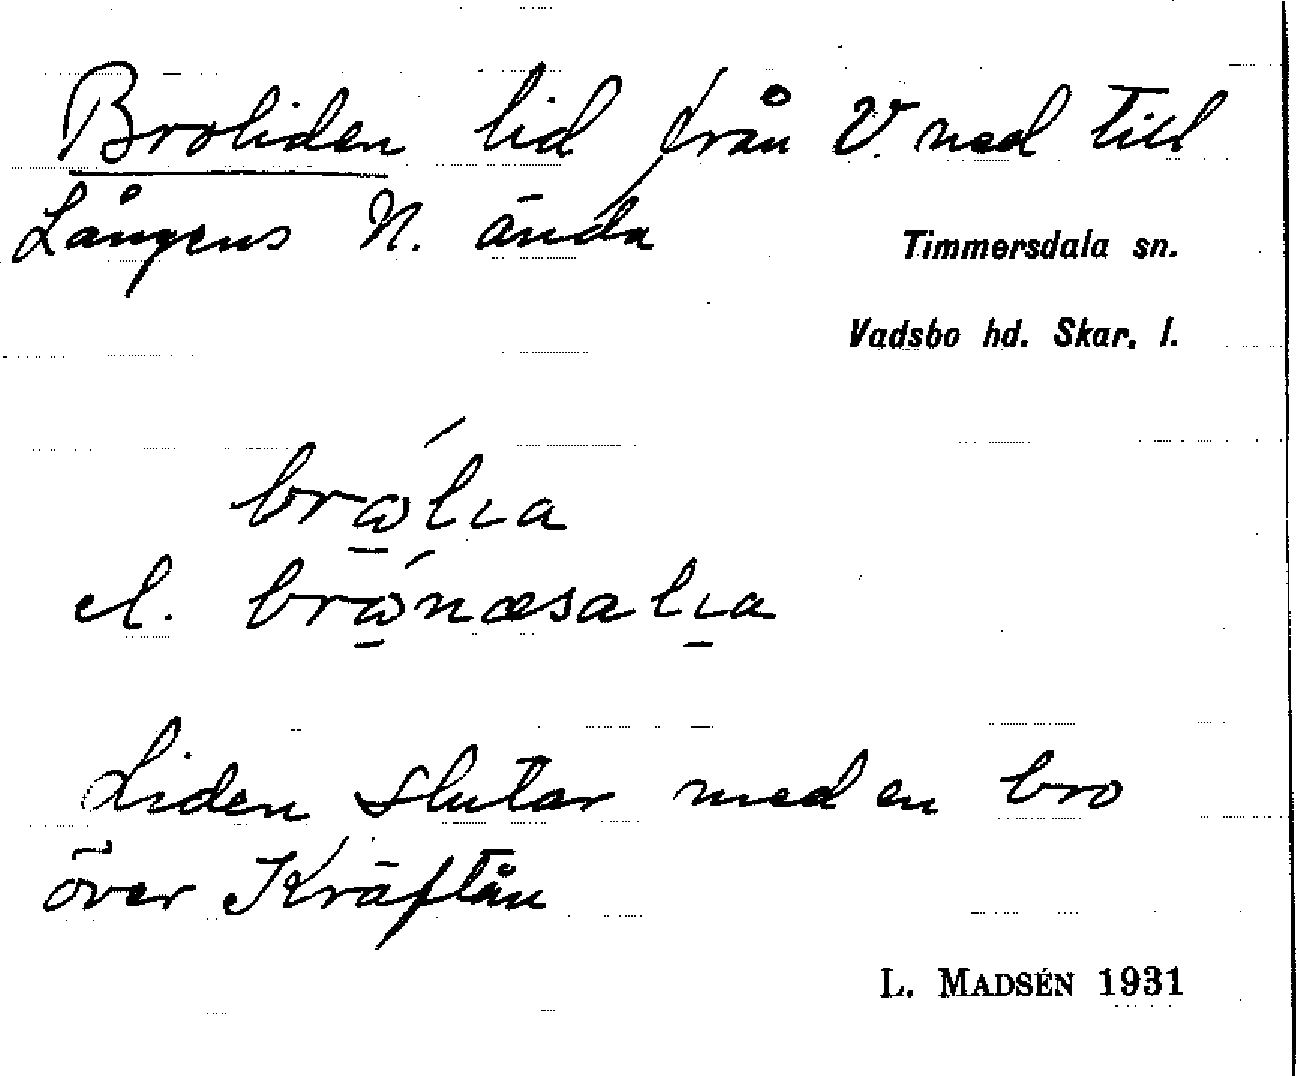 Broliden lid från V. ned till
Långens N. ända
Timmersdala sn.
Vadsbo hd. Skar. l.
brώ̲lıa
el. brώ̲næsalı̲a
Liden slutar med en bro
över Kräftån
L. MADSÉN 1931